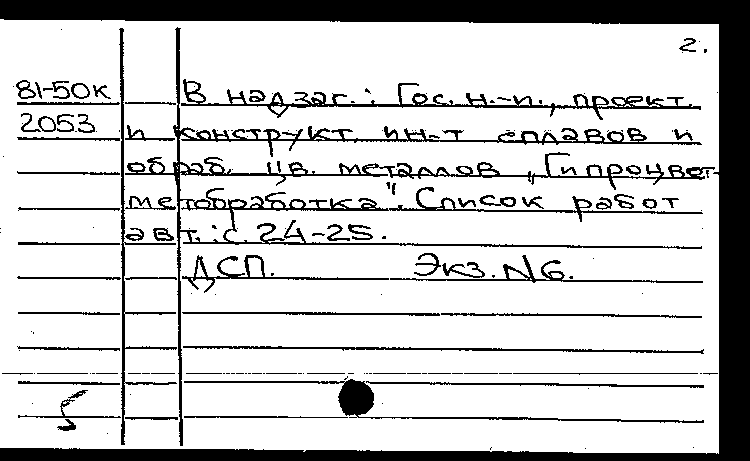 2.
81-50к В надзаг.: Гос. н.-и., проект.
2053 и конструкт. ин-т сплавов и
обраб. цв. металлов „Гипроцвет-
метобработка". Список работ
авт.: с. 24-25.
ДСП. Экз. N6.
5